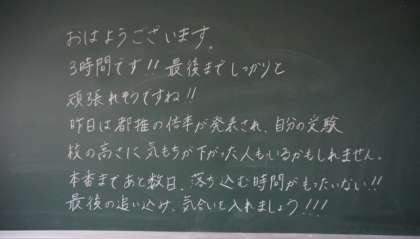 おはようございます。
3時間です!! 最後までしっかりと
頑張れそうですね!!
昨日は都推の倍率が発表され、自分の受験
校の高さに気もちが下がった人もいるかもしれません。
本番まであと数日、落ち込む時間がもったいない!!
最後の追い込み、気合いを入れましょう!!!